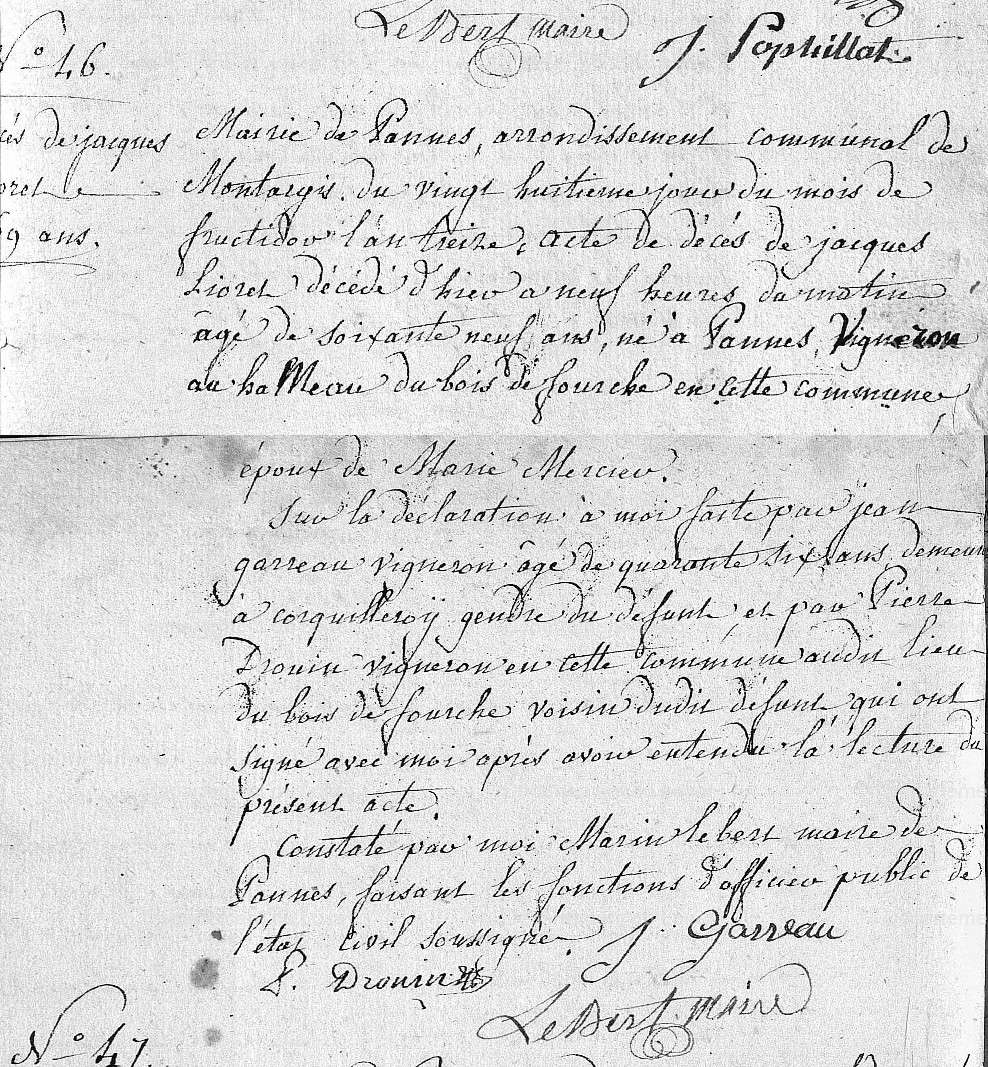 Le Bert maire
J. Pophillat
N° 46.
cés de jacques
oret
69 ans.
Mairie de Pannes, arrondissement communal de
Montargis. du vingt huitieme jour du mois de
fructidor l'an treize, acte de décés de jacques
Lioret décédé d'hier a neuf heures du matin
âgé de soixante neuf ans, né à Pannes, Vigneron
au hameau du bois de fourche en cette commune,
époux de Marie Mercier.
Sur la déclaration à moi faite par jean
garreau vigneron âgé de quarante six ans demeur
à corquilleroÿ gendre du défunt, et par Pierre
Drouin vigneron en cette commune audit lieu
du bois de fourche voisin dudit défunt qui ont
signé avec moi après avoir entendu la lecture du
présent acte.
Constaté par moi Marin lebert maire de
Pannes, faisant les fonctions d'officier public de
l'état civil soussigné.
J. Garreau
P. Drouin
Le Bert maire
N° 47.